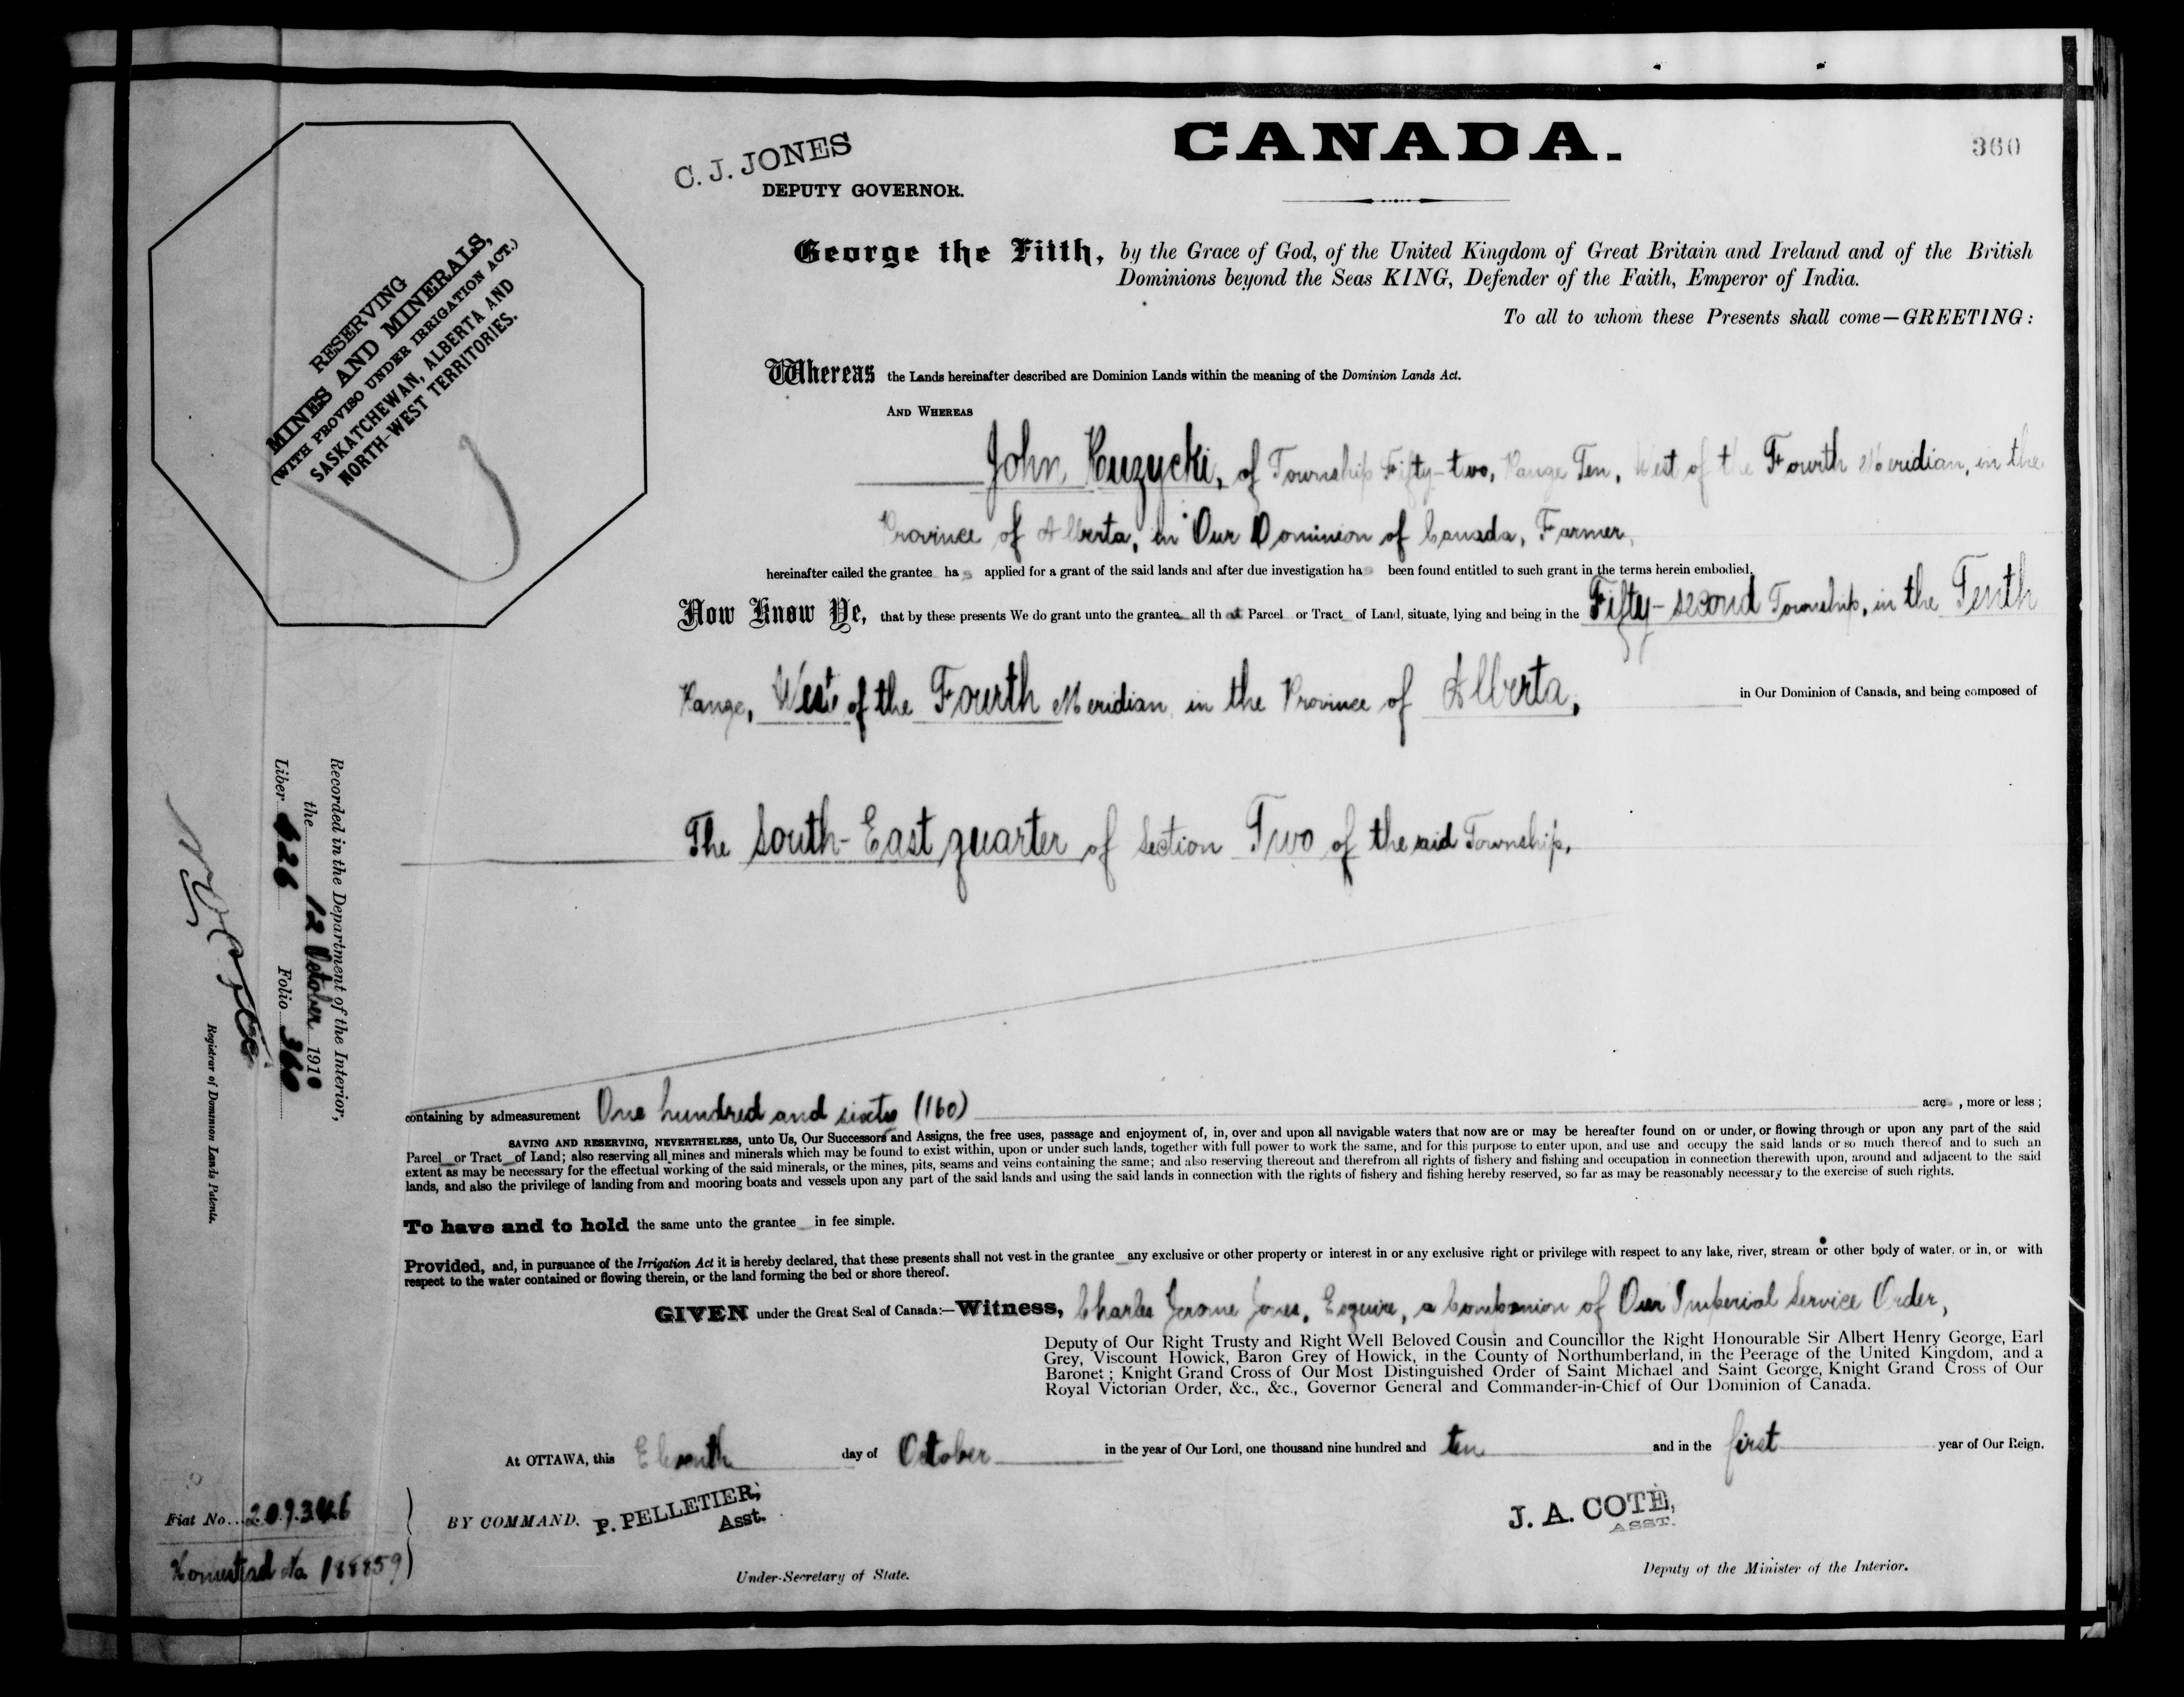 CANADA.
360
C. J. JONES
DEPUTY GOVERNOR.
George the Fifth, by the Grace of God, of the United Kingdom of Great Britain and Ireland and of the British
Dominions beyond the Seas KING, Defender of the Faith, Emperor of India.
To all to whom these Presents shall come—GREETING:
RESERVING
MINES AND MINERALS,
(WITH PROVISO UNDER IRRIGATION ACT.)
SASKATCHEWAN, ALBERTA AND
NORTH-WEST TERRITORIES.
Whereas the Lands hereinafter described are Dominion Lands within the meaning of the Dominion Lands Act.
AND WHEREAS
John Kuzycki, of Township Fifty-two, Range Ten, West of the Fourth Meridian, in the
Province of Alberta, in Our Dominion of Canada, Farmer,
hereinafter called the grantee has applied for a grant of the said lands and after due investigation has been found entitled to such grant in the terms herein embodied.
Now Know Ye, that by these presents We do grant unto the grantee all that Parcel or Tract of Land, situate, lying and being in the Fifty-second Township, in the Tenth
Range, West of the Fourth Meridian, in the Province of Alberta, in Our Dominion of Canada, and being composed of
The South-East quarter of Section Two of the said Township.
Recorded in the Department of the Interior,
the 12 October 1910
Liber 626 Folio 360
Registrar of Dominion Lands Patents.
containing by admeasurement One hundred and sixty (160) acres, more or less;
SAVING AND RESERVING, NEVERTHELESS, unto Us, Our Successors and Assigns, the free uses, passage and enjoyment of, in, over and upon all navigable waters that now are or may be hereafter found on or under, or flowing through or upon any part of the said
Parcel or Tract of Land; also reserving all mines and minerals which may be found to exist within, upon or under such lands, together with full power to work the same, and for this purpose to enter upon, and use and occupy the said lands or so much thereof and to such an
extent as may be necessary for the effectual working of the said minerals, or the mines, pits, seams and veins containing the same; and also reserving thereout and therefrom all rights of fishery and fishing and occupation in connection therewith upon, around and adjacent to the said
lands, and also the privilege of landing from and mooring boats and vessels upon any part of the said lands and using the said lands in connection with the rights of fishery and fishing hereby reserved, so far as may be reasonably necessary to the exercise of such rights.
To have and to hold the same unto the grantee in fee simple.
Provided, and, in pursuance of the Irrigation Act it is hereby declared, that these presents shall not vest in the grantee any exclusive or other property or interest in or any exclusive right or privilege with respect to any lake, river, stream or other body of water, or in, or with
respect to the water contained or flowing therein, or the land forming the bed or shore thereof.
GIVEN under the Great Seal of Canada:—Witness, Charles Jerome Jones, Esquire, a Companion of Our Imperial Service Order,
Deputy of Our Right Trusty and Right Well Beloved Cousin and Councillor the Right Honourable Sir Albert Henry George, Earl
Grey, Viscount Howick, Baron Grey of Howick, in the County of Northumberland, in the Peerage of the United Kingdom, and a
Baronet; Knight Grand Cross of Our Most Distinguished Order of Saint Michael and Saint George, Knight Grand Cross of Our
Royal Victorian Order, &c., &c., Governor General and Commander-in-Chief of Our Dominion of Canada.
At OTTAWA, this Eleventh day of October in the year of Our Lord, one thousand nine hundred and ten and in the first year of Our Reign.
Fiat No. 209346
Homestead No 188859
BY COMMAND. P. PELLETIER,
Asst.
Under-Secretary of State.
J. A. COTÉ,
ASST.
Deputy of the Minister of the Interior.